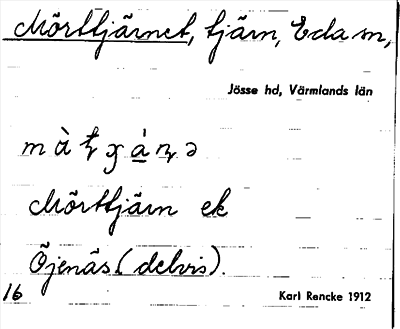 Mörttjärnet, tjärn, Eda sn,
Jösse hd, Värmlands län
Mörttjärn ek
Öjenäs (delvis).
16
Karl Rencke 1912